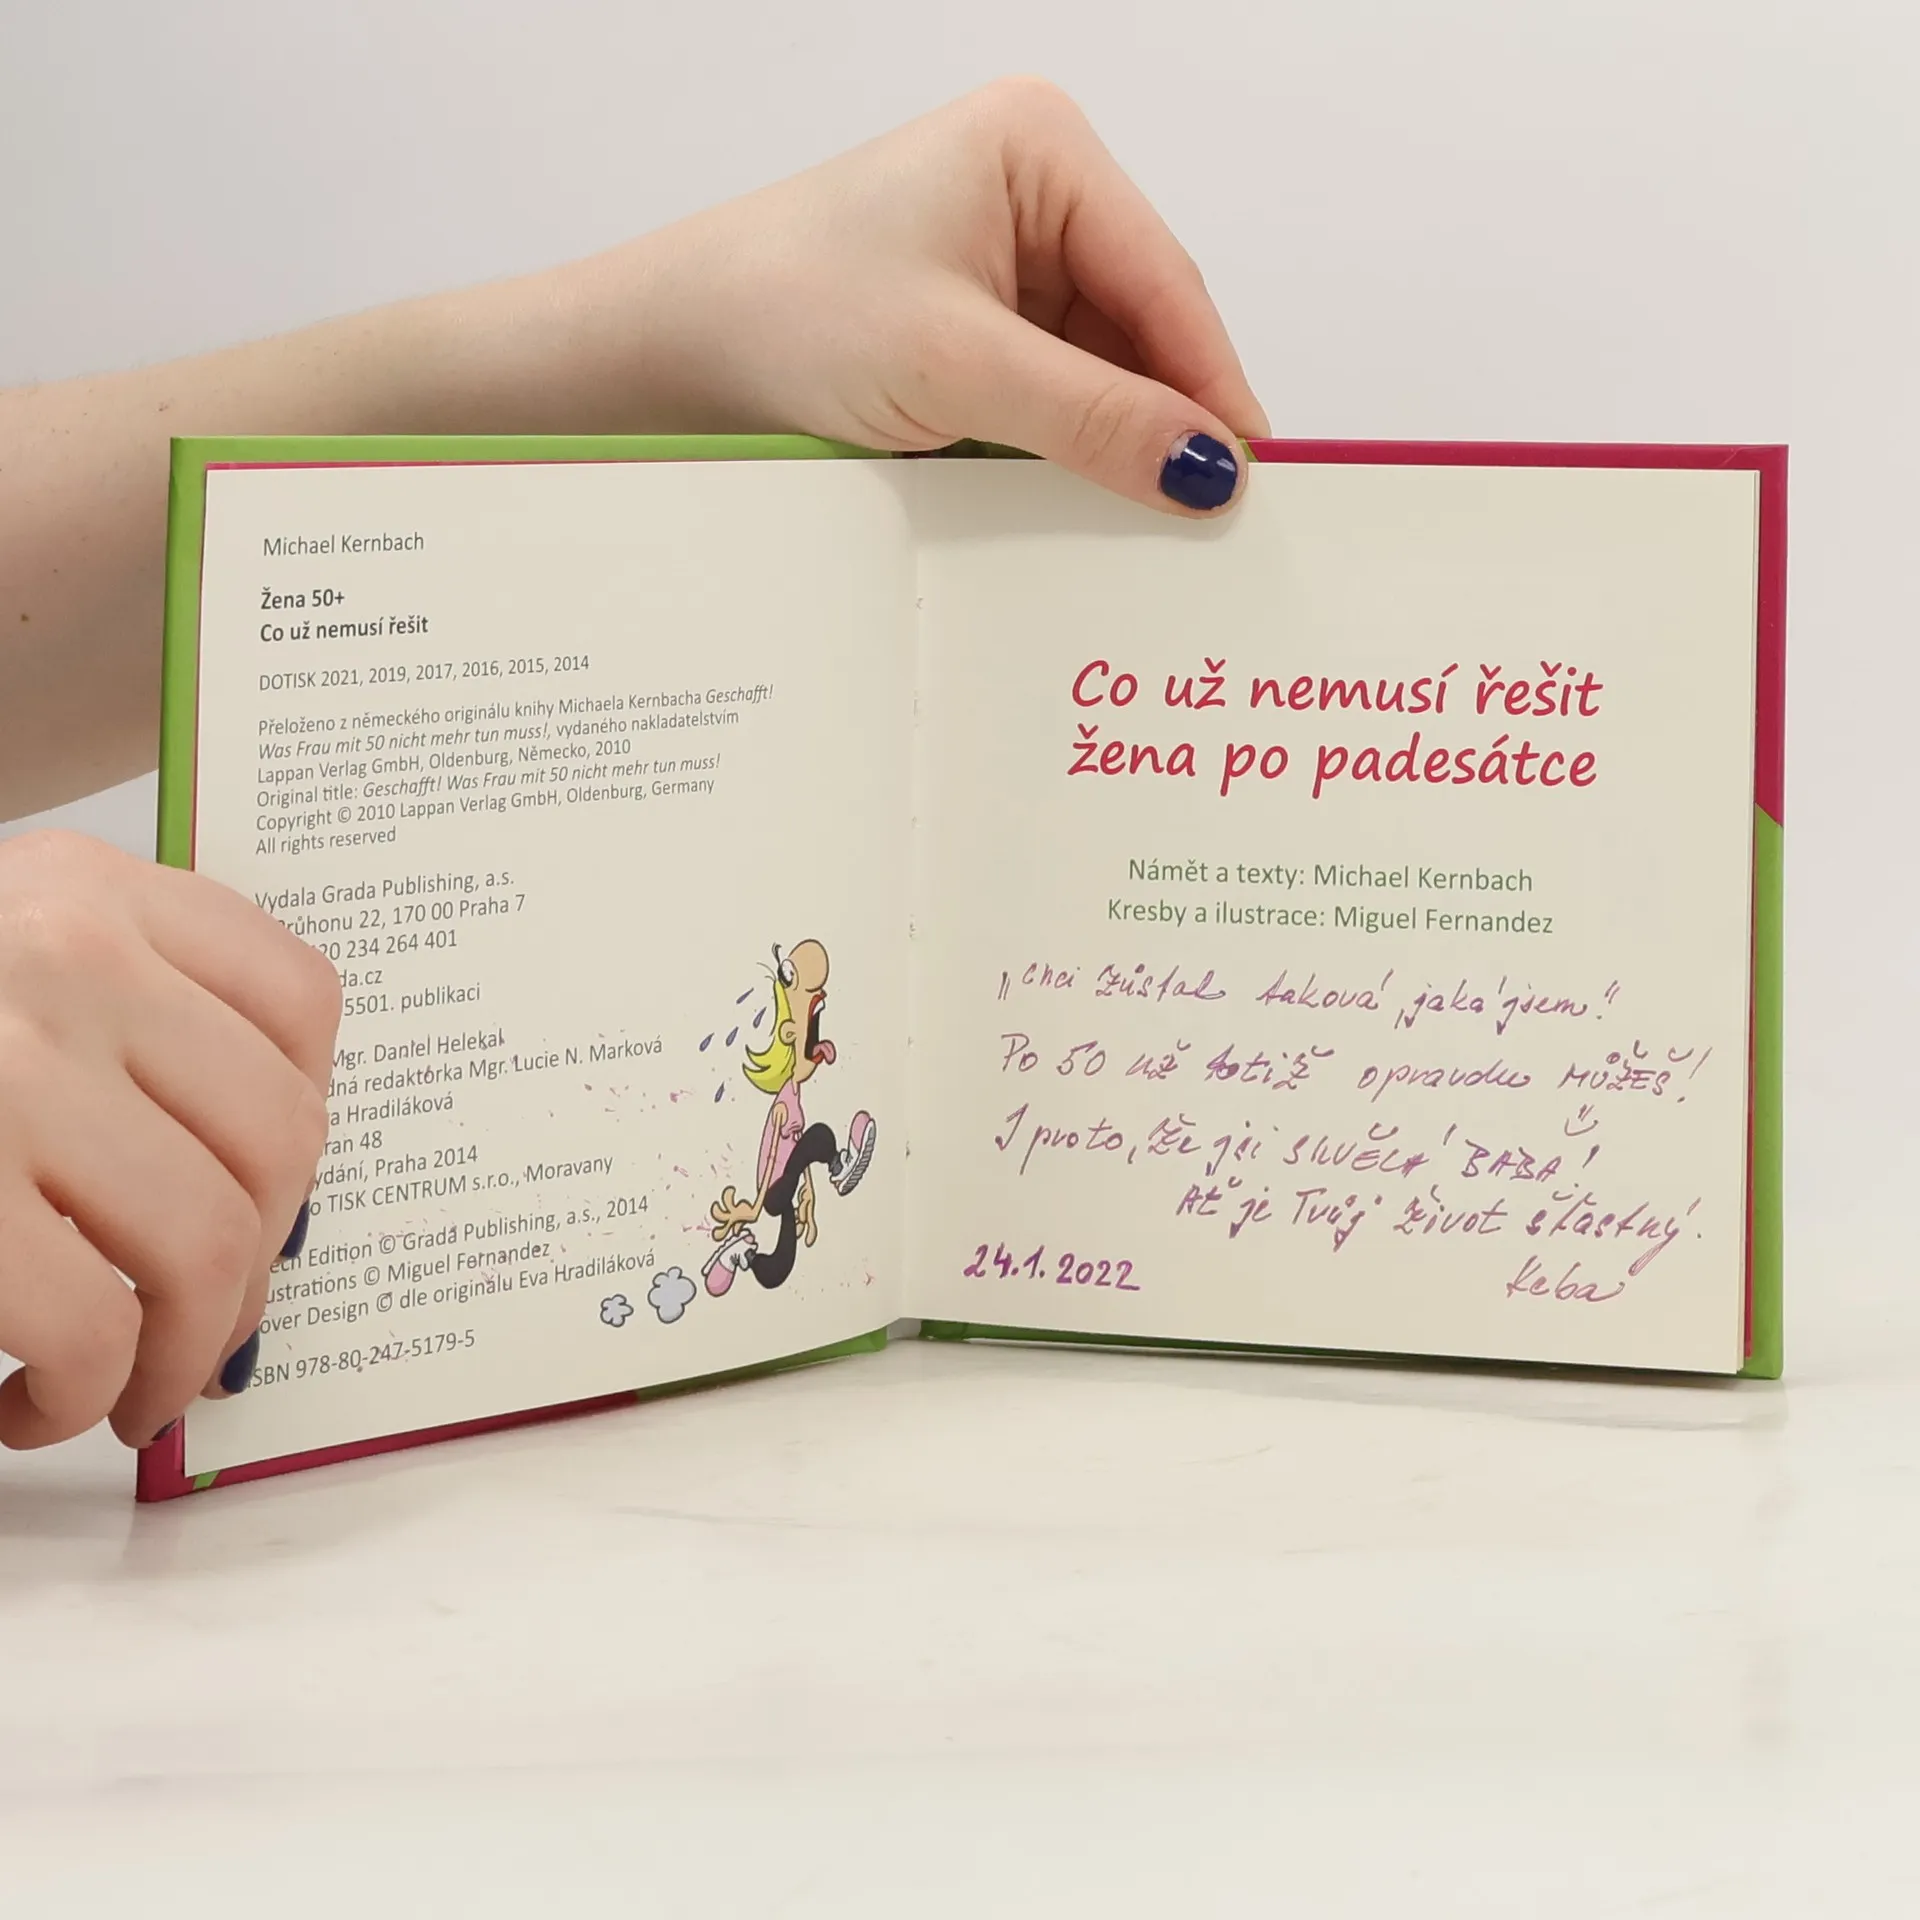 Michael Kernbach
Žena 50+
Co už nemusí řešit
DOTISK 2021, 2019, 2017, 2016, 2015, 2014
Přeloženo z německého originálu knihy Michaela Kernbacha Geschafft!
Was Frau mit 50 nicht mehr tun muss!, vydaného nakladatelstvím
Lappan Verlag GmbH, Oldenburg, Německo, 2010
Original title: Geschafft! Was Frau mit 50 nicht mehr tun muss!
Copyright © 2010 Lappan Verlag GmbH, Oldenburg, Germany
All rights reserved
Vydala Grada Publishing, a.s.
22, 170 00 Praha 7
20 234 264 401
da.cz
5501. publikaci
Mgr. Daniel Helekal
redaktorka Mgr. Lucie N. Marková
Hradiláková
48
Praha 2014
TISK CENTRUM s.r.o., Moravany
Edition © Grada Publishing, a.s., 2014
© Miguel Fernandez
Design © dle originálu Eva Hradiláková
ISBN 978-80-247-5179-5
Co už nemusí řešit
žena po padesátce
Námět a texty: Michael Kernbach
Kresby a ilustrace: Miguel Fernandez
„Chci zůstat taková, jaká jsem!“
Po 50 už totiž opravdu MŮŽEŠ!
I proto, že jsi SKVĚLÁ BABA!
Ať je Tvůj život šťastný.
24.1.2022
Keba